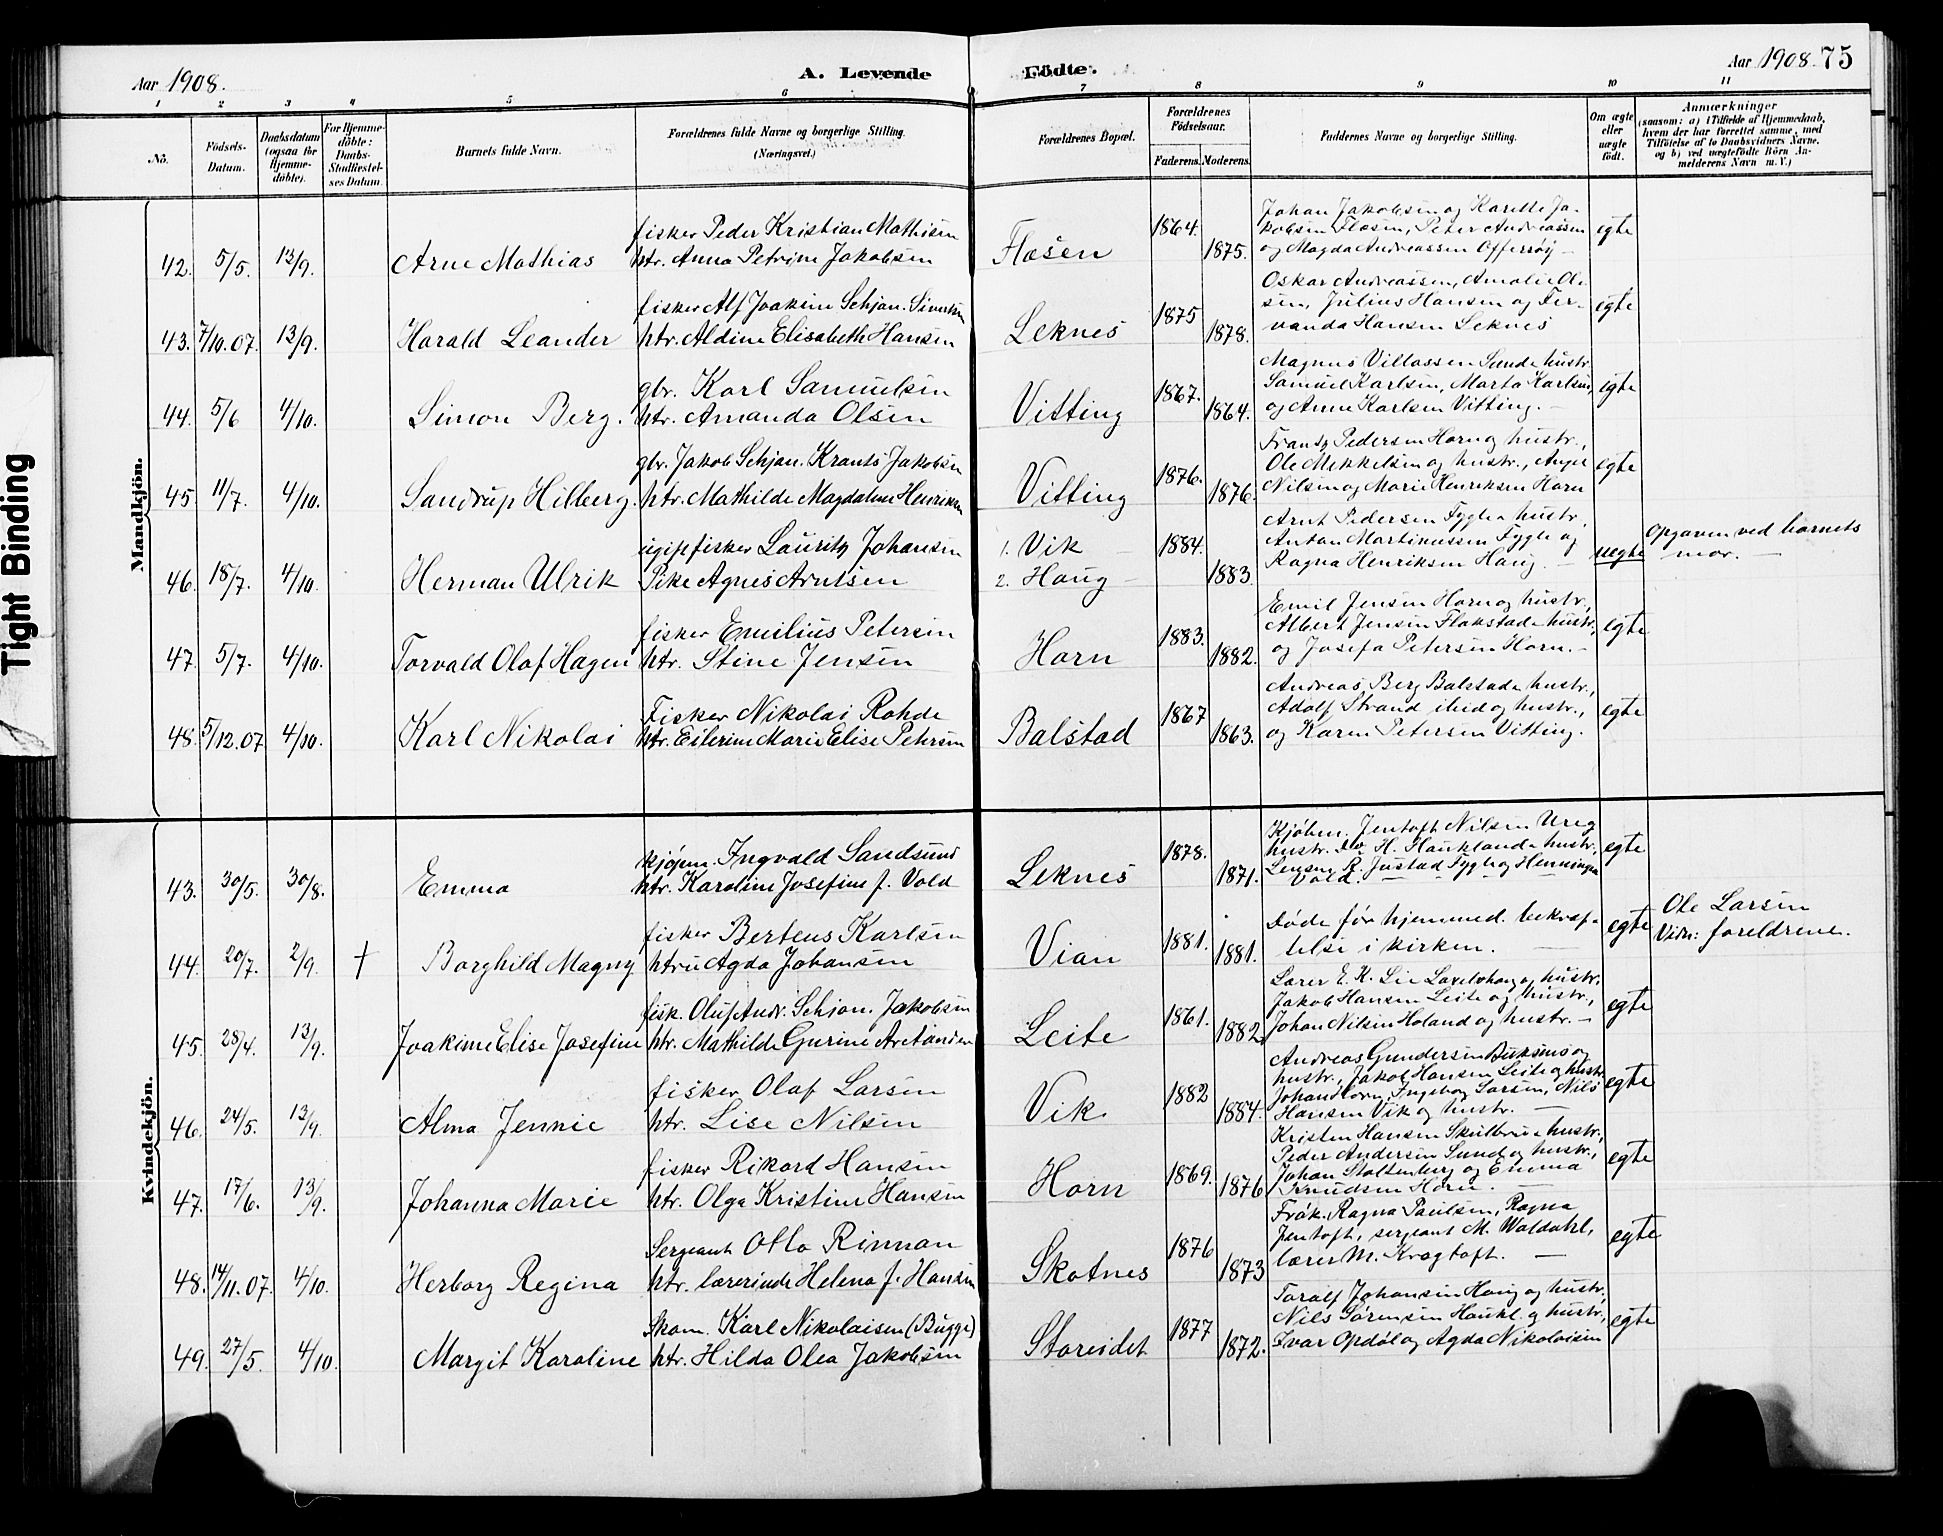 Aar 1908.
A. Levende
Födte.
Aar 1908. 75
1 2 3 4 5 6 7 8 9 10 11
No.
Födsels-
Datum.
Daabsdatum
(ogsaa for
Hjemme-
döbte).
For Hjemme-
döbte:
Daabs-
Stadfæstel-
ses Datum.
Barnets fulde Navn.
Forældrenes fulde Navne og borgerlige Stilling.
(Næringsvei.)
Forældrenes Bopæl.
Forældrenes
Födselsaar.
Faderens. Moderens.
Faddernes Navne og borgerlige Stilling.
Om ægte
eller
uægte
födt.
Anmærkninger
(saasom: a) i Tilfælde af Hjemmedaab,
hvem der har forrettet samme, med
Tilföielse af to Daabsvidners Navne,
og b) ved uægtefödte Börn An-
melderens Navn m. V.)
Tight Binding
Mandkjön.
fisker Peder Kristian Mathisen
42. 5/5. 13/9. Arne Mathias htr. Anna Petrine Jakobsen
Flæsen 1864. 1875.
Johan Jakobsen og Karette Ja-
kobsen Flæsen, Peter Andreassen
og Magda Andreassen Offersøy
egte
fisker Alf Joakim Schjan. Sivertsen
43. 7/10.07. 13/9. Harald Leander htr. Aldine Elisabeth Hansen
Leknes 1875 1878.
Oskar Andreassen, Amalie Ol-
sen, Julius Hansen og Fer-
nanda Hansen Leknes
egte
gbr. Karl Samuelsen
44. 5/6 4/10. Simon Berg. htr. Amanda Olsen
Vitting 1867. 1864.
Magnus Villassen Sund e hustr.
Samuel Karlsen, Marta Karlsen,
og Anne Karlsen Vitting.
egte
gbr. Jakob Schjan. Krants Jakobsen
45. 11/7. 4/10. Sandrup Hilberg. htr. Mathilde Magdalene Henriksen
Vitting 1876. 1876.
Frantz Pedersen Horn og hustr.,
Ole Mikkelsen og hustr.,
Nilsen og Marie Henriksen Horn
egte
ugift fisker Lauritz Johansen
46. 18/7. 4/10. Herman Ulrik Pike Agnes Arntsen
1. Vik
2. Haug 1884. 1883.
Arnt Pedersen Fygle e hustr.
Anton Martinussen Fygle og
Ragna Henriksen Haug.
uegte
Opgaven ved barnets
mor.
fisker Emilius Petersen
47. 5/7. 4/10. Torvald Olaf Hagen htr. Stine Jensen
Horn 1883. 1882.
Emil Jensen Horn og hustr.,
Albert Jensen Flakstad e hustr.,
og Josefa Petersen Horn.
egte
Fisker Nikolai Rohde
48. 5/12.07 4/10. Karl Nikolai htr. Eilerine Marie Elise Petersen
Balstad 1867 1863.
Andreas Berg Balstad e hustr.,
Adolf Strand ibid og hustr.,
og Karen Petersen Vitting.
egte
Kvindekjön.
kjøpm. Ingvald Sandsund
43. 30/5. 30/8. Emma htr. Karoline Josefine f. Vold
Leknes 1878. 1871.
Kjøbm. Jentoft Nilsen Ureg
hustr. do H. Haukland e hustr.,
Lensm. R. Justad Fygle og Henningen
Vold.
egte
fisker Berteus Karlsen
44. 20/7. 2/9. + Borghild Magny htru Agda Johansen
Vian 1881. 1881.
Døde før hjemmed. bekræf-
telse i kirken.
egte
Ole Larsen
Vidn: foreldrene.
fisk. Oluf Andr. Schjan. Jakobsen
45. 28/4. 13/9. Joakime Elise Josefine htr. Mathilde Gurine
Leite 1861. 1882
Lærer E. K. Lie og hustr.
Jakob Hansen Leite og hustr.,
Johan Nilsen Holand og hustr.
egte
fisker Olaf Larsen
46. 24/5. 13/9. Alma Jennie htr. Lise Nilsen
Vik 1882 1884.
Andreas Gundersen Buksnes og
hustr., Jakob Hansen Leite og hustr
Johan Horn, Ingeborg Larsen, Nils
Hansen Vik og hustr.
egte
fisker Rikard Hansen
47. 17/6. 13/9. Johanna Marie htr. Olga Kristine Hansen
Horn 1869. 1876
Kristen Hansen Skulbru e hustr.,
Peder Andersen Sund og hustr.,
Johan Stoltenberg og Emma
Knudsen Horn.
egte
Sergeant Otto Rinnan
48. 14/11.07. 4/10. Herborg Regina htr. lærerinde Helena f. Hansen
Skotnes 1876 1873
Frøk. Ragna Paulsen, Ragna
Jentoft, sergeant M. Waldahl,
lærer M. Kragtoft.
egte
Skom. Karl Nikolaisen (Bugge)
49. 27/5. 4/10. Margit Karoline htr. Hilda Olea Jakobsen
Storeidet 1877 1872.
Toralf Johansen Haug og hustr.,
Nils Sørensen Haukl. og hustr.,
Ivar Opdøl og Agda Nikolaisen
egte